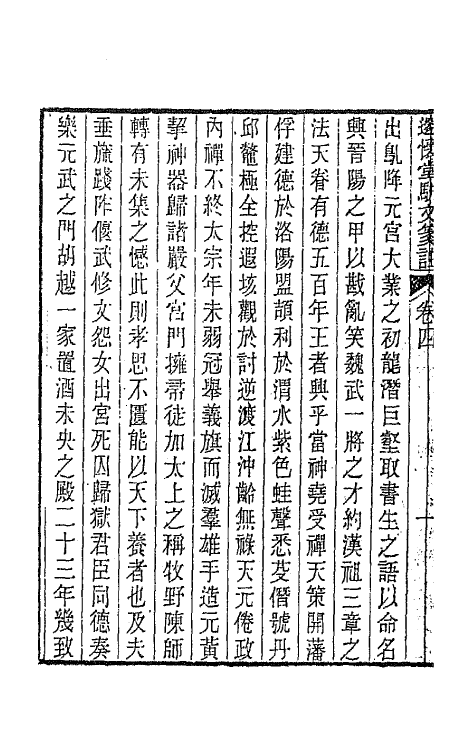 邃懷堂駢文箋註 卷四 十
出鳬降元宮大業之初龍潛巨壑取書生之語以命名
興晉陽之甲以戡亂笑魏武一將之才約漢祖三章之
法天眷有德五百年王者興乎當神堯受禪天策開藩
俘建德於洛陽盟頡利於渭水紫色蛙聲悉芟僭號丹
邱鼇極全控遐垓觀於討逆渡江沖齡無祿天元倦政
內禪不終太宗年未弱冠舉義旗而滅羣雄手造元黃
挈神器歸諸嚴父宮門擁帚徒加太上之稱牧野陳師
轉有未集之憾此則孝思不匱能以天下養者也及夫
垂旒踐阼偃武修文怨女出宮死囚歸獄君臣同德奏
樂元武之門胡越一家置酒未央之殿二十三年幾致